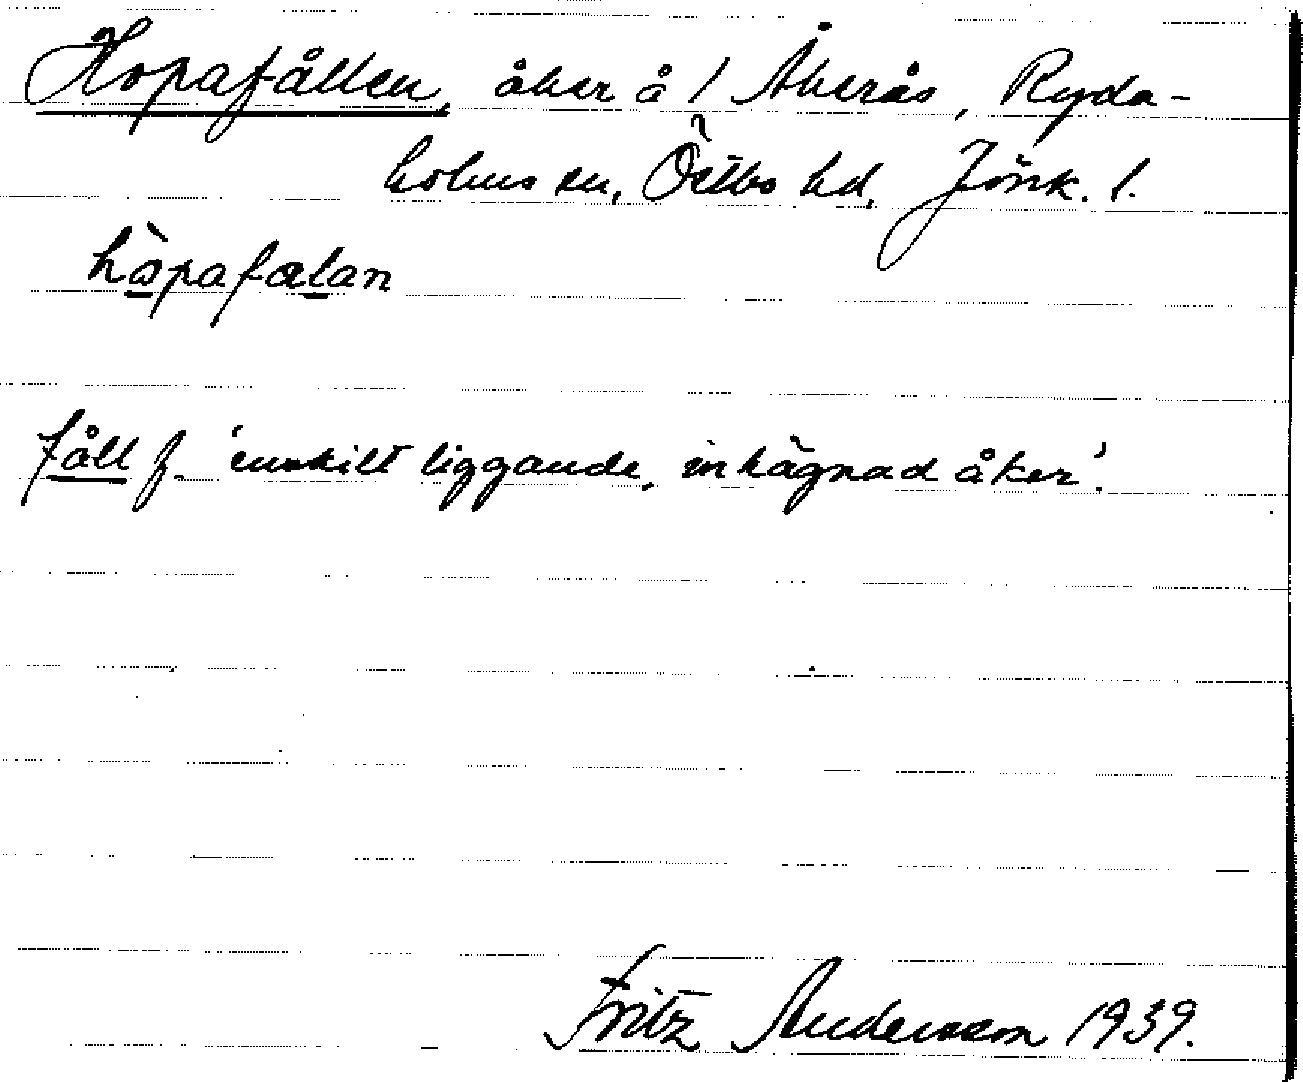 Hopafållen, åker å 1 Åkerås, Ryda-
holms sn, Östbo hd, Jönk. l.
hòpafælan
fåll f. 'enskilt liggande, inhägnad åker'.
Fritz Andersson 1939.